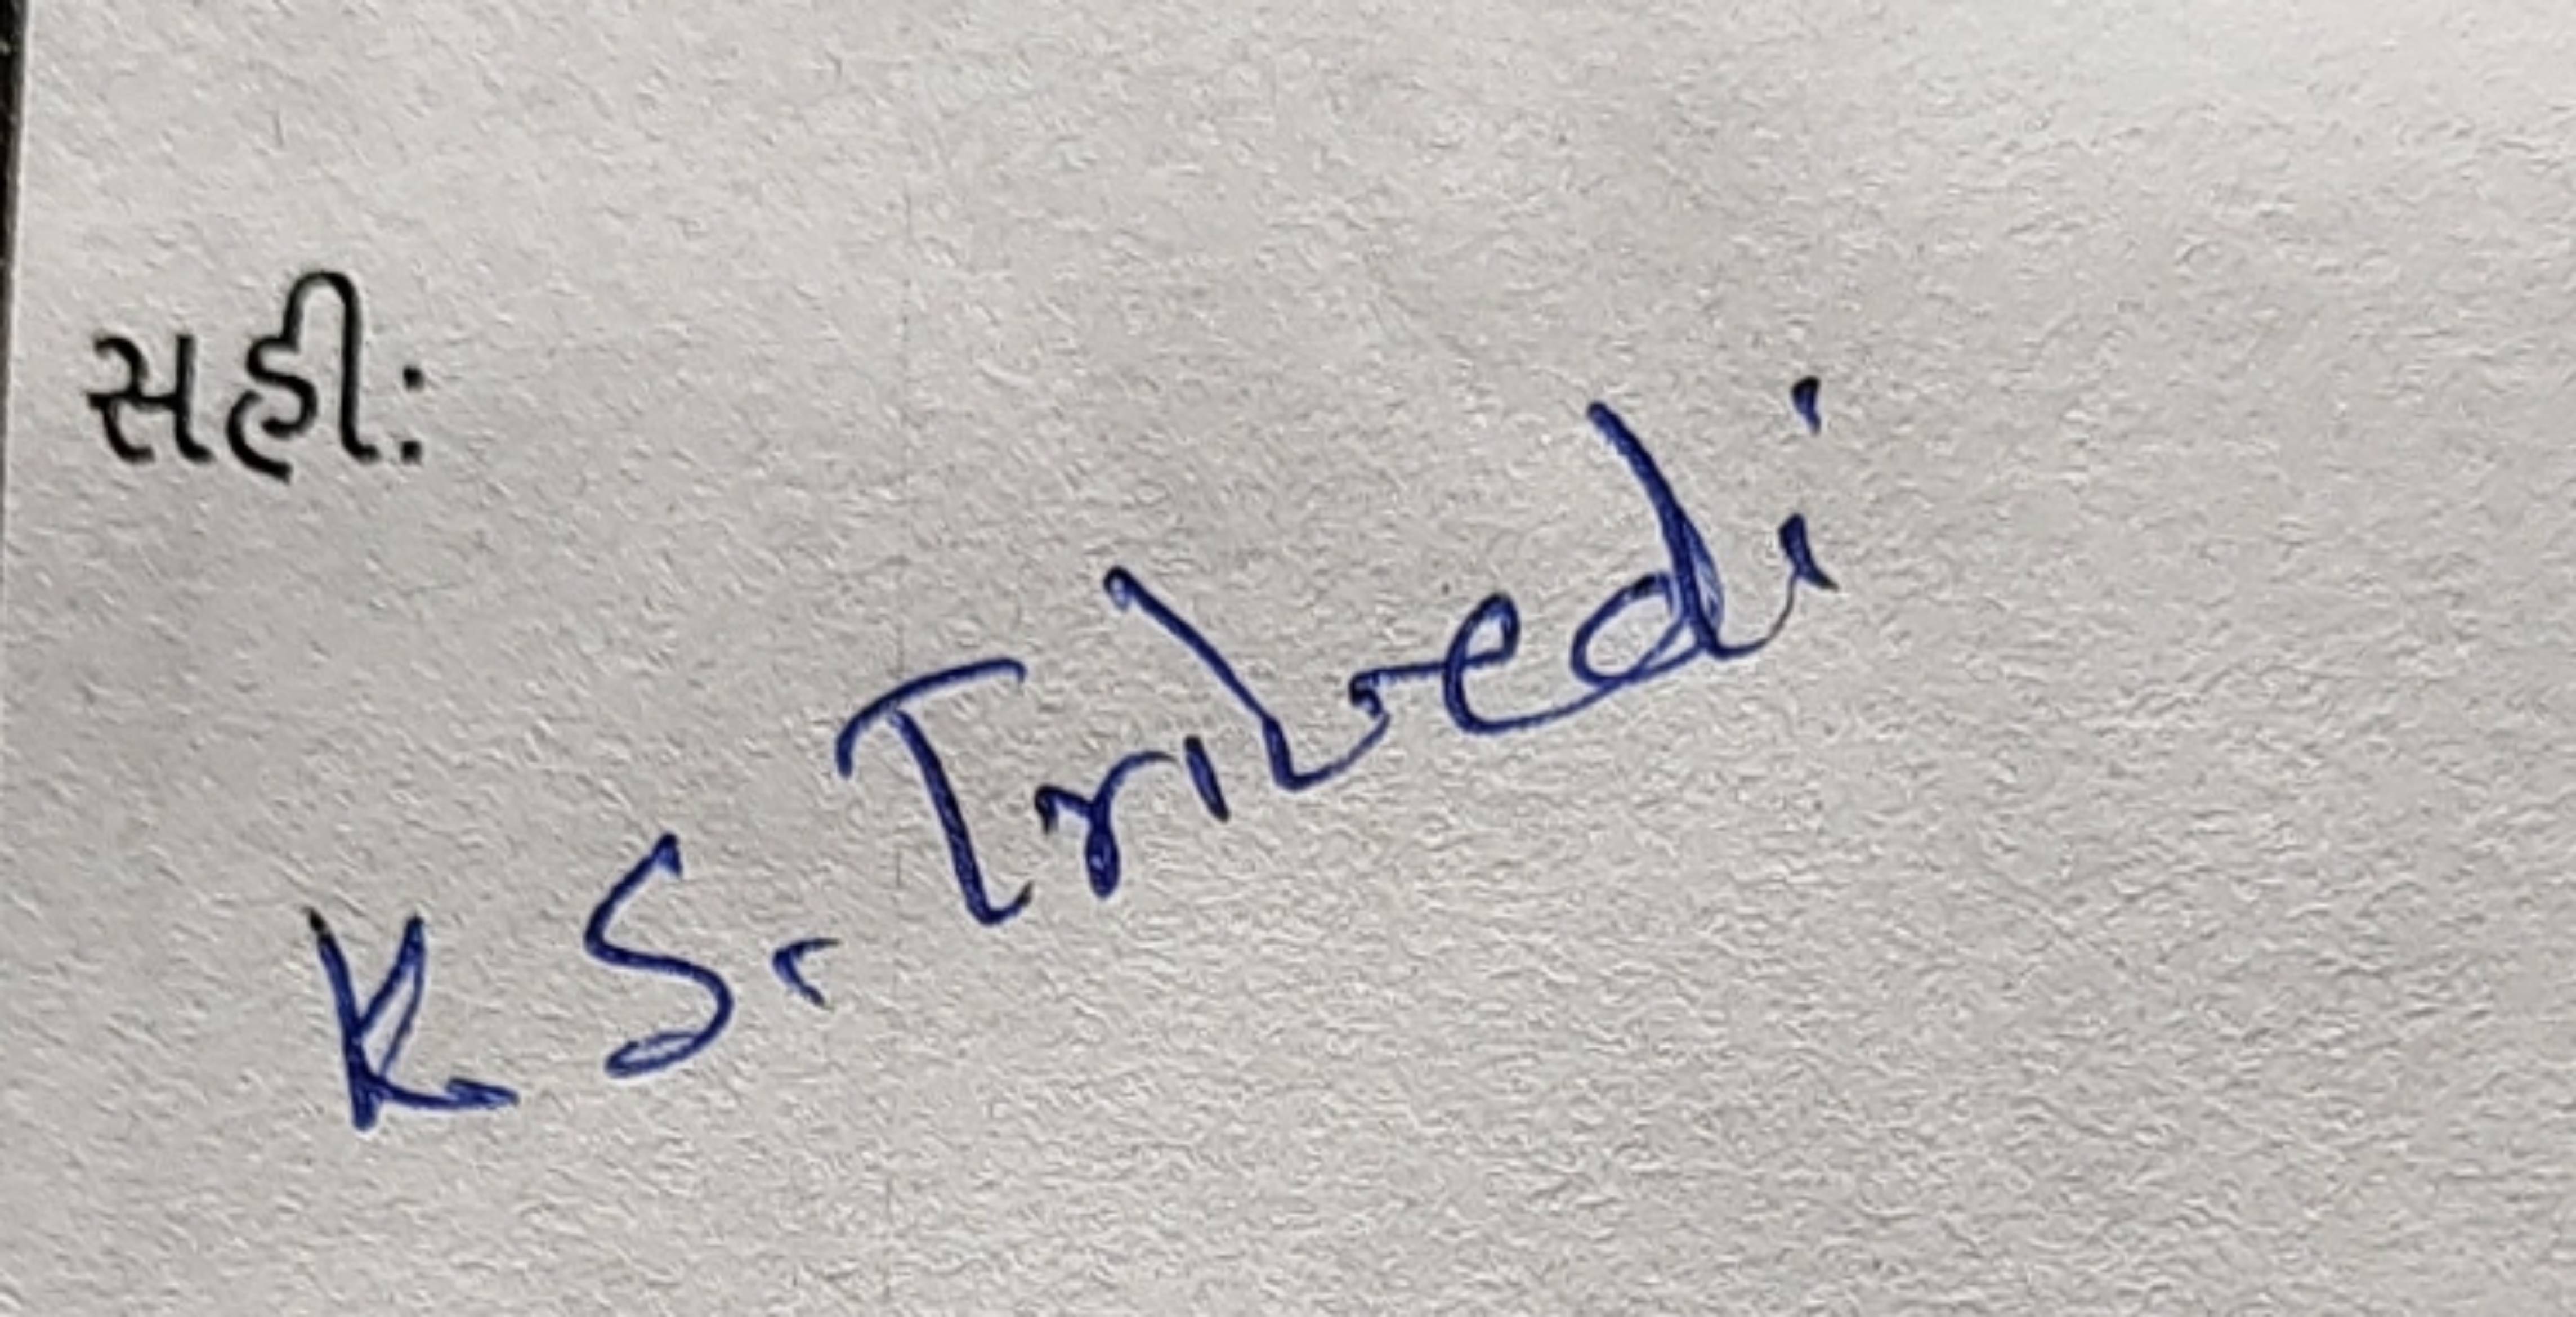 સહીઃ
K S. Trivedi